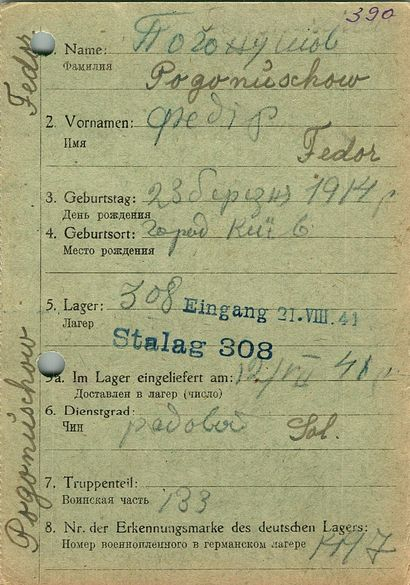 390
1. Name: Погонушов
Фамилия Pogonuschow
2. Vornamen: Федір
Имя Fedor
3. Geburtstag: 23 березня 1914 р
День рождения
4. Geburtsort: город Київ
Место рождения
5. Lager: 308 Eingang 21. VIII. 41
Лагер
Stalag 308
5a. Im Lager eingeliefert am: 12/VII 41
Доставлен в лагер (число)
6. Dienstgrad: радовой Sol.
Чин
7. Truppenteil:
Воинская часть 133
8. Nr. der Erkennungsmarke des deutschen Lagers:
Номер военнопленного в германском лагере
Pogonuschow
Fedor